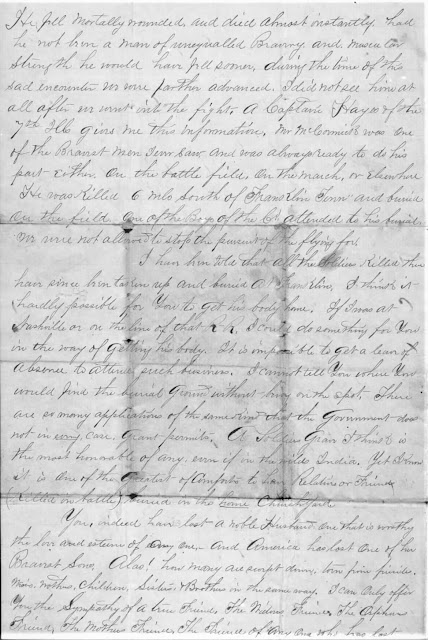 He fell mortally wounded, and died almost instantly. had
he not been a man of unequalled Bravery and muscular
strength he would have fell sooner, during the time of this
sad encounter we were farther advanced. I did not see him at
all after we went into the fight. A Captain Hayes of the
7th Ills gives me this information, Mr McCormick was one
of the Bravest men I ever saw and was always ready to do his
part either On the battle field, On the march, or Elsewhere
He was Killed 6 mls South of Franklin Tenn and buried
on the field, one of the Boys of the Co attended to his burial.
We were not allowed to stop the pursuit of the flying foe.
I have been told that all the Soldiers Killed there
have since been taken up and buried at Franklin, I think it
hardly possible for You to get his body home. If I was at
Nashville or on the line of that R.R. I could do something for You
in the way of getting his body. It is impossible to get a leave of
absence to attend such business. I cannot tell You where You
would find the burial Ground without being on the spot. There
are so many applications of the same kind that the Government does
not in every case, grant permits. A Soldiers Grave I think is
the most honorable of any, even if in the wilds India. Yet I know
it is One of the Greatest of Comforts to have Relative or Friend
(Killed in battle) buried in the home Churchyard.
You, indeed have lost a noble Husband one that is worthy
the love and esteem of any one. And America has lost One of her
Bravest Sons. Alas! how many are swept down, torn from friends,
Wives, mothers, Children, Sisters & Brothers in the same way. I can only offer
You the Sympathy of a true Friend, The Widows Friend, The Orphans
Friend, The Mothers Friend, The Friend of any one who has lost